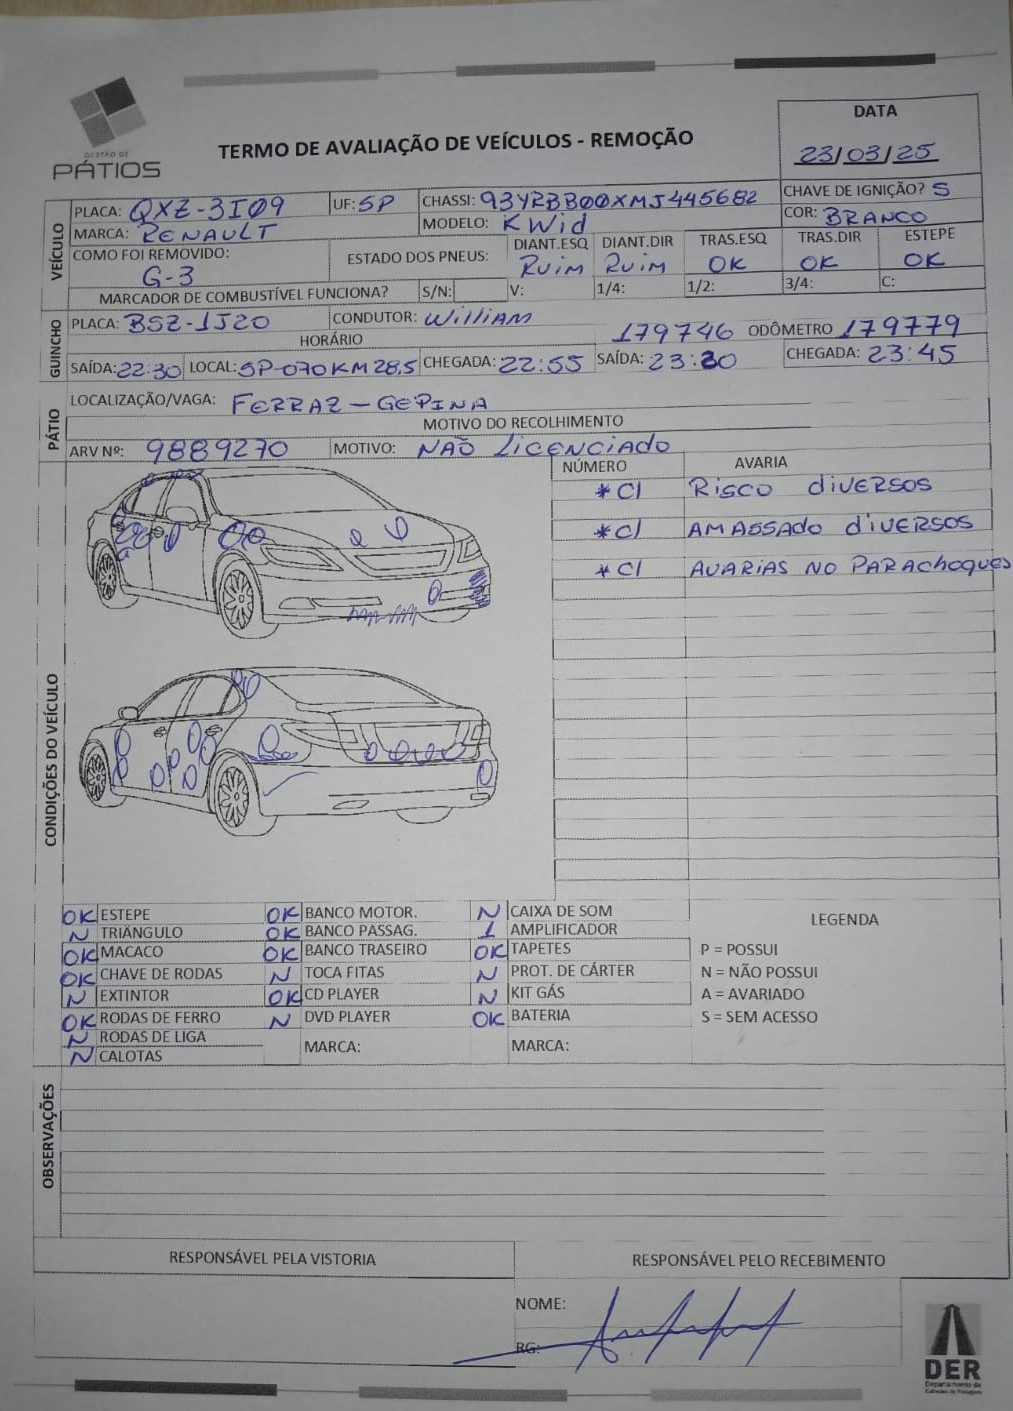 GESTÃO DE
PÁTIOS
TERMO DE AVALIAÇÃO DE VEÍCULOS - REMOÇÃO
DATA
23/03/25
VEÍCULO
PLACA: QXZ-3I09 UF: SP CHASSI: 93YRBB00XMJ445682 CHAVE DE IGNIÇÃO? S
MARCA: RENAULT MODELO: KWid COR: BRANCO
COMO FOI REMOVIDO: ESTADO DOS PNEUS: DIANT.ESQ DIANT.DIR TRAS.ESQ TRAS.DIR ESTEPE
G-3 RUIM RUIM OK OK OK
MARCADOR DE COMBUSTÍVEL FUNCIONA? S/N: V: 1/4: 1/2: 3/4: C:
GUINCHO
PLACA: BSZ-1J20 CONDUTOR: William
HORÁRIO 179746 ODÔMETRO 179779
SAÍDA: 22:30 LOCAL: SP-070 KM 28,5 CHEGADA: 22:55 SAÍDA: 23:20 CHEGADA: 23:45
PÁTIO
LOCALIZAÇÃO/VAGA: FERRAZ - GEPINA
MOTIVO DO RECOLHIMENTO
ARV Nº: 9889270 MOTIVO: NÃO LICENCIADO
CONDIÇÕES DO VEÍCULO
NÚMERO AVARIA
*C/ RISCO diVERSOS
*C/ AMASSADO diVERSOS
*C/ AVARIAS NO PARAChoques
OK ESTEPE OK BANCO MOTOR. N CAIXA DE SOM LEGENDA
N TRIÂNGULO OK BANCO PASSAG. 1 AMPLIFICADOR
OK MACACO OK BANCO TRASEIRO OK TAPETES P = POSSUI
OK CHAVE DE RODAS N TOCA FITAS N PROT. DE CÁRTER N = NÃO POSSUI
N EXTINTOR OK CD PLAYER N KIT GÁS A = AVARIADO
OK RODAS DE FERRO N DVD PLAYER OK BATERIA S = SEM ACESSO
N RODAS DE LIGA MARCA: MARCA:
N CALOTAS
OBSERVAÇÕES
RESPONSÁVEL PELA VISTORIA RESPONSÁVEL PELO RECEBIMENTO
NOME:
RG:
DER
Departamento de
Estradas de Rodagem